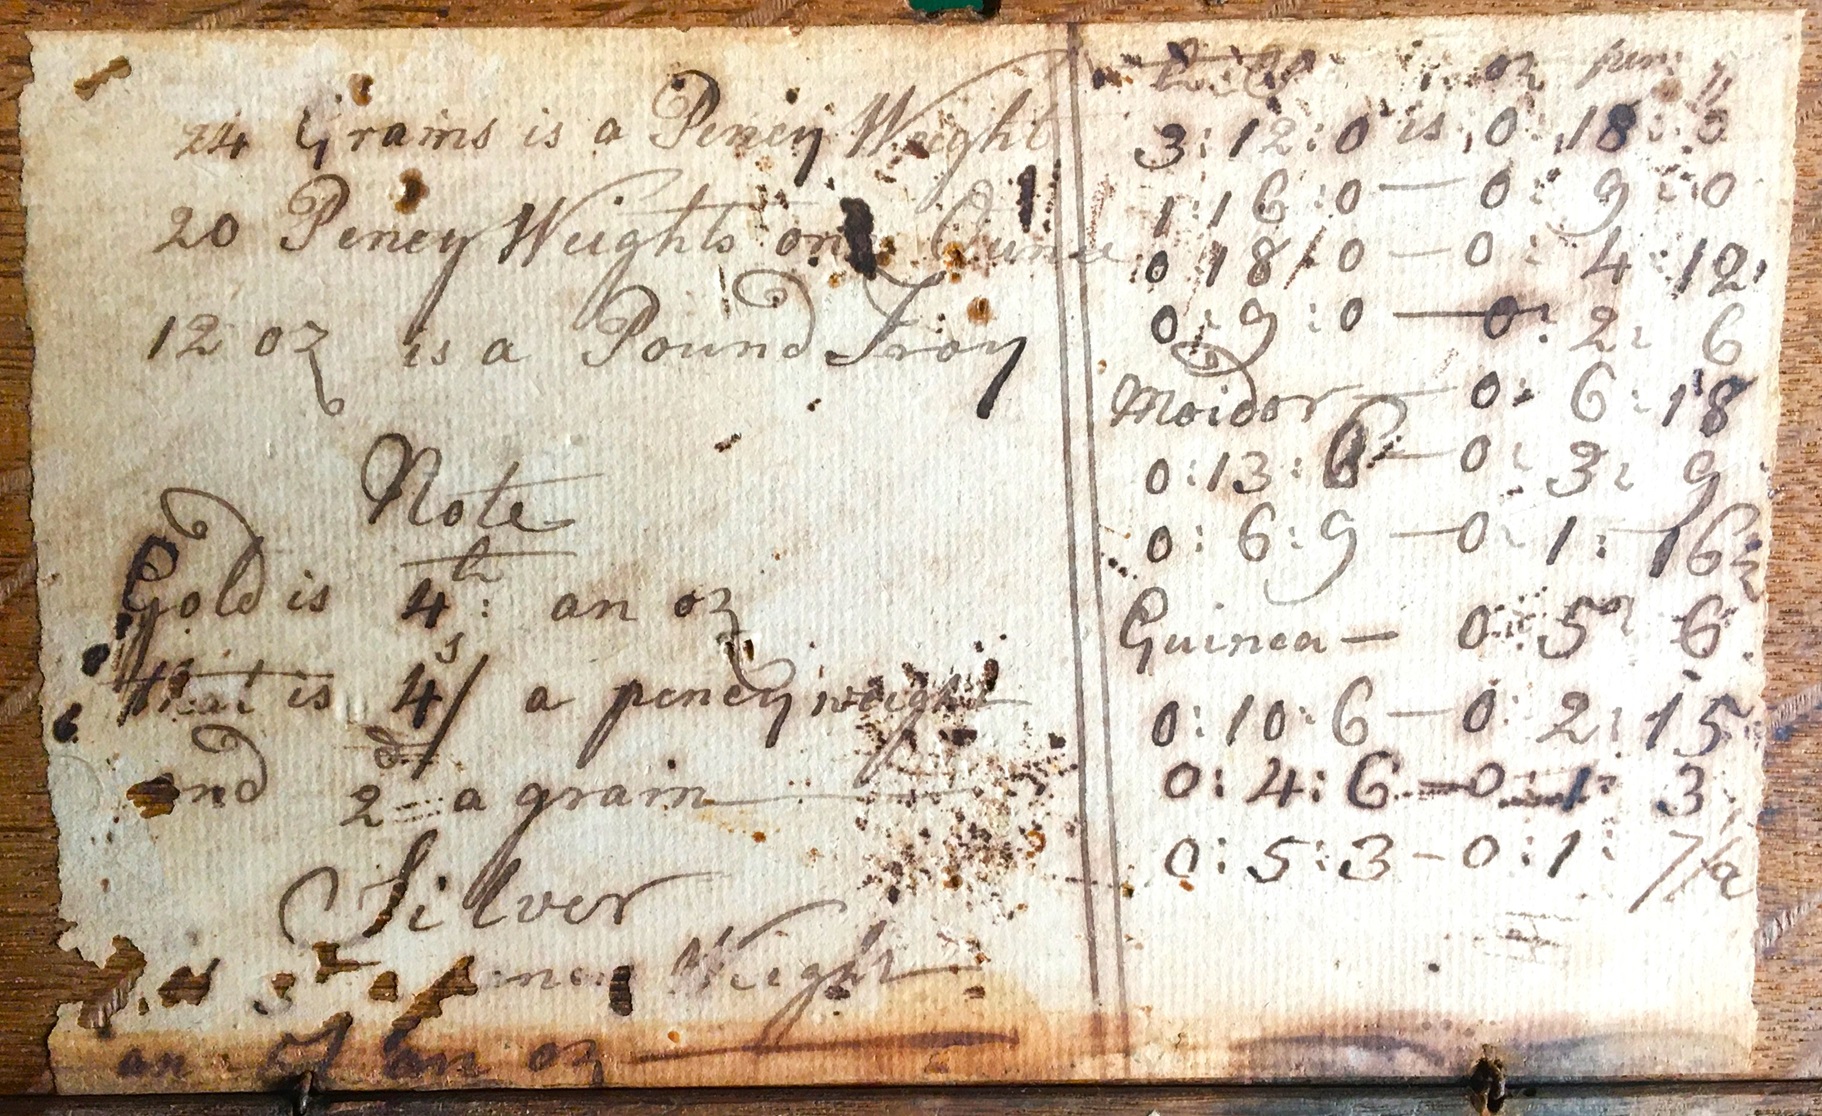 24 Grams is a Peney Weight
20 Peney Weights one Ounce
12 oz is a Pound Troy
Note
Gold is 4th: an oz
that is 4s/ a peney weight
and 2d a grain
Silver
is a Weight
an oz
oz
3:12:0 is 0:18:0
1:16:0 — 0:9:0
0:18:0 — 0:4:12
0:9:0 — 0:2:6
Moidor — 0:6:18
0:13:6 — 0:3:9
0:6:9 — 0:1:16½
Guinea — 0:5:6
0:10:6 — 0:2:15
0:4:6 — 0:1:3
0:5:3 — 0:1:7